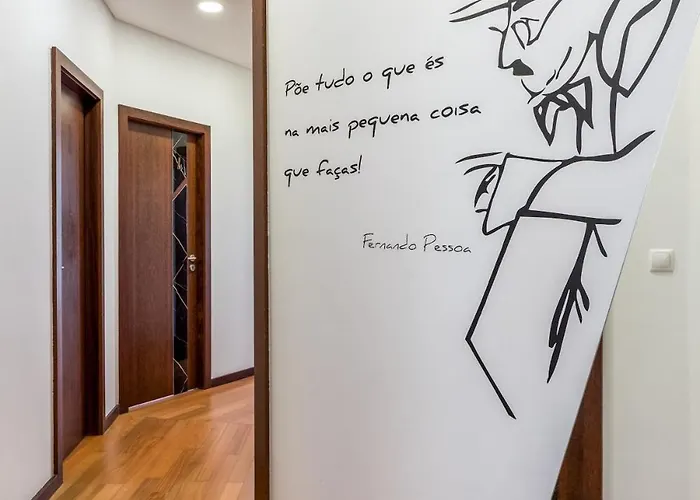 Põe tudo o que és
na mais pequena coisa
que faças!
Fernando Pessoa